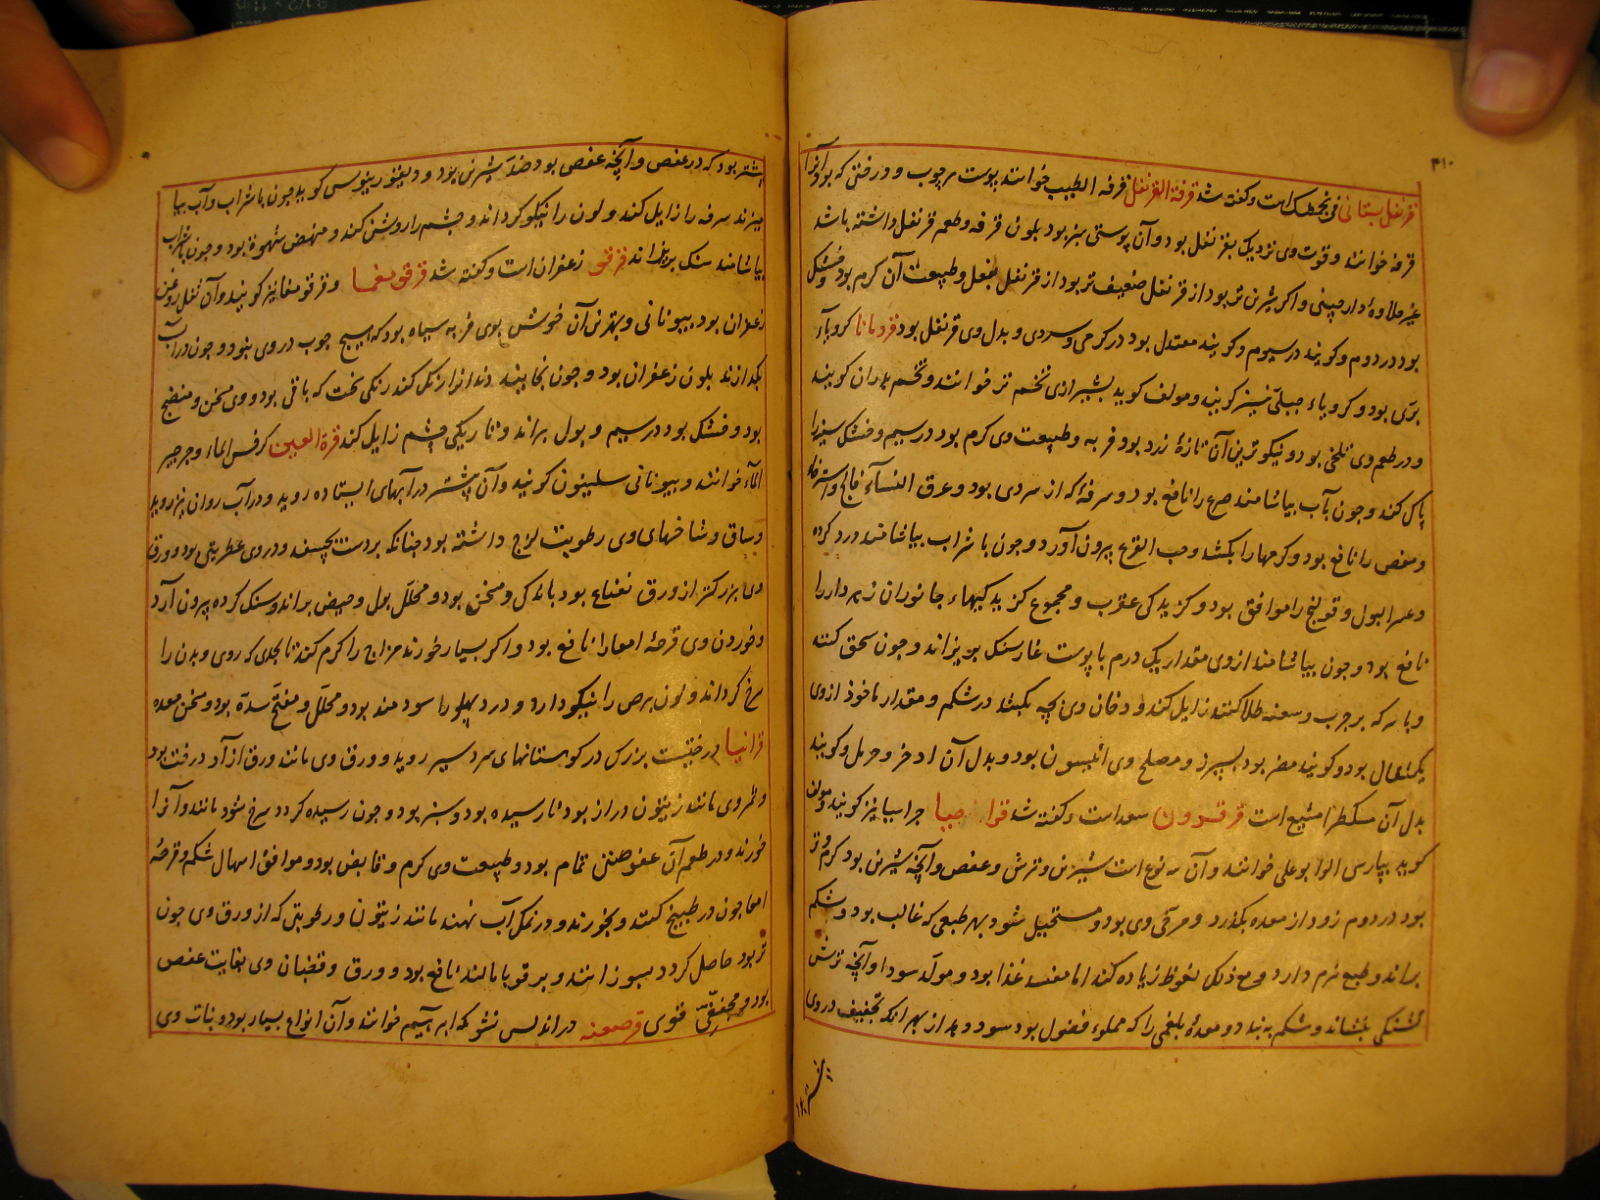 ۳۱۰
قرنفل بستانی فرنجمشک است و گفته شد قرفة القرنفل قرفه الطیب خوانند پوست چوب و درختی که بود آنرا
قرفه خوانند و قوت وی نزدیک بقرنفل بود و آن پوستی سبز بود بلون قرفه و طعم قرنفل داشته باشد
غیر علاوهٔ دارچینی و اگر شیرین تر بود از قرنفل ضعیف تر بود از قرنفل بفعل و طبیعت آن گرم بود و خشک
بود در دوم و گویند در سیوم و گویند معتدل بود در گرمی و سردی و بدل وی قرنفل بود قردمانا کرویاء
بری بود و کرویاء جبلی نیز گویند و مولف گوید بشیرازی تخم تره خوانند و تخم بدران گویند
و در طعم وی تلخی بود و نیکوترین آن تازهٔ زرد بود فربه و طبیعت وی گرم بود در سیم و خشک سینه را
پاک کند و چون بآب بیاشامند صرع را نافع بود و سرفهٔ که از سردی بود و عرق النساء فالج و استرخا
و مغص را نافع بود و کرمها را بکشد و حب القرع بیرون آورد و چون با شراب بیاشامند درد کرده
و عسر البول و قولنج را موافق بود و گزیدگی عقرب و مجموع گزیدگیهاء جانوران زهردار را
نافع بود و چون بیاشامند از وی مقدار یک درم با پوست غار سنک بریزاند و چون سحق کنند
و با سرکه بر جرب و سعفه طلا کنند زایل کند و دخان وی بچه بکشد در شکم و مقدار ماخوذ از وی
یکمثقال بود و گویند مضر بود بسپرز و مصلح وی انیسون بود و بدل آن اذخر و حرمل و گویند
بدل آن مسکطرامشیع است قرقرون سعد است و گفته شد قراصیا جراسیا نیز گویند و مولف
گوید بپارسی آلوا بوعلی خوانند و آن سه نوع است شیرین و ترش و عفص و آنچه شیرین بود گرم و تر
بود در دوم زود از معده بگذرد و مرخی وی بود و مستحیل شود بهر طبعی که غالب بود و شکم
براند و طبع نرم دارد و مع ذلک نعوظ زیاده کند اما مفسد غذا بود و مولد سودا و آنچه ترش
تشنگی بنشاند و شکم به بندد و معدهٔ بلغمی را که مملو از فضول بود سود دهد از بهر آنکه تجفیف در وی
بیشتر بود که در عفص و آنچه عفص بود ضد شیرین بود و دیسقوریدوس گوید چون با شراب و آب بیا
میزند سرفه را زایل کند و لون را نیکو گرداند و چشم را روشن کند و منهض شهوة بود و چون بشراب
بیاشامند سنک بریزاند قرقو زعفران است و گفته شد قرقومغما و قرقومغا نیز گویند و آن ثفل روغن
زعفران بود بیونانی و بهترین آن خوش بوی فربه سیاه بود که هیچ چوب در وی نبود و چون در آب
بگدازند بلون زعفران بود و چون بخایند دندانرا رنک کند رنکی سخت که باقی بود و وی مسخن و منضج
بود و خشک بود در سیم و بول براند و تاریکی چشم زایل کند قرة العین کرفس الماء و جرجیر
الماء خوانند و بیونانی سلینون گویند و آن بیشتر در آبهای ایستاده روید و در آب روان نیز روید
و ساق و شاخهای وی رطوبت لزج داشته بود چنانکه بر دست بچسبد و در وی عطریتی بود و ورق
وی بزرکتر از ورق نعناع بود بالکل و مسخن بود و محلل بول و حیض براند و سنک کرده بیرون آرد
و خوردن وی قرحهٔ امعا را نافع بود و اگر بسیار خورند مزاج را گرم کند تا بحدی که روی و بدن را
سرخ گرداند و لون برص را نیکو دارد و درد پهلو را سودمند بود و محلل و مفتح سده بود و مسخن معده
قرانیا درختیست بزرک در کوهستانهای سردسیر روید و ورق وی مانند ورق ازاد درخت بود
و ثمر وی مانند زیتون دراز بود تا رسیده بود و سبز بود و چون رسیده کردد سرخ شود مانند و آنرا
خورند و در طعم آن عفوصتی تمام بود و طبیعت وی گرم و قابض بود و موافق اسهال شکم و قرحهٔ
امعا چون در طبیخ کنند و بخورند و در نمک آب نهند مانند زیتون و رطوبتی که از ورق وی چون
تر بود حاصل گردد بسوزانند و بر قوبا مالند نافع بود و ورق و قضبان وی بغایت عفص
بود و مجفف قوی قرصعنه در اندلس شوکه ابراهیم خوانند و آن انواع بسیار بود و نبات وی